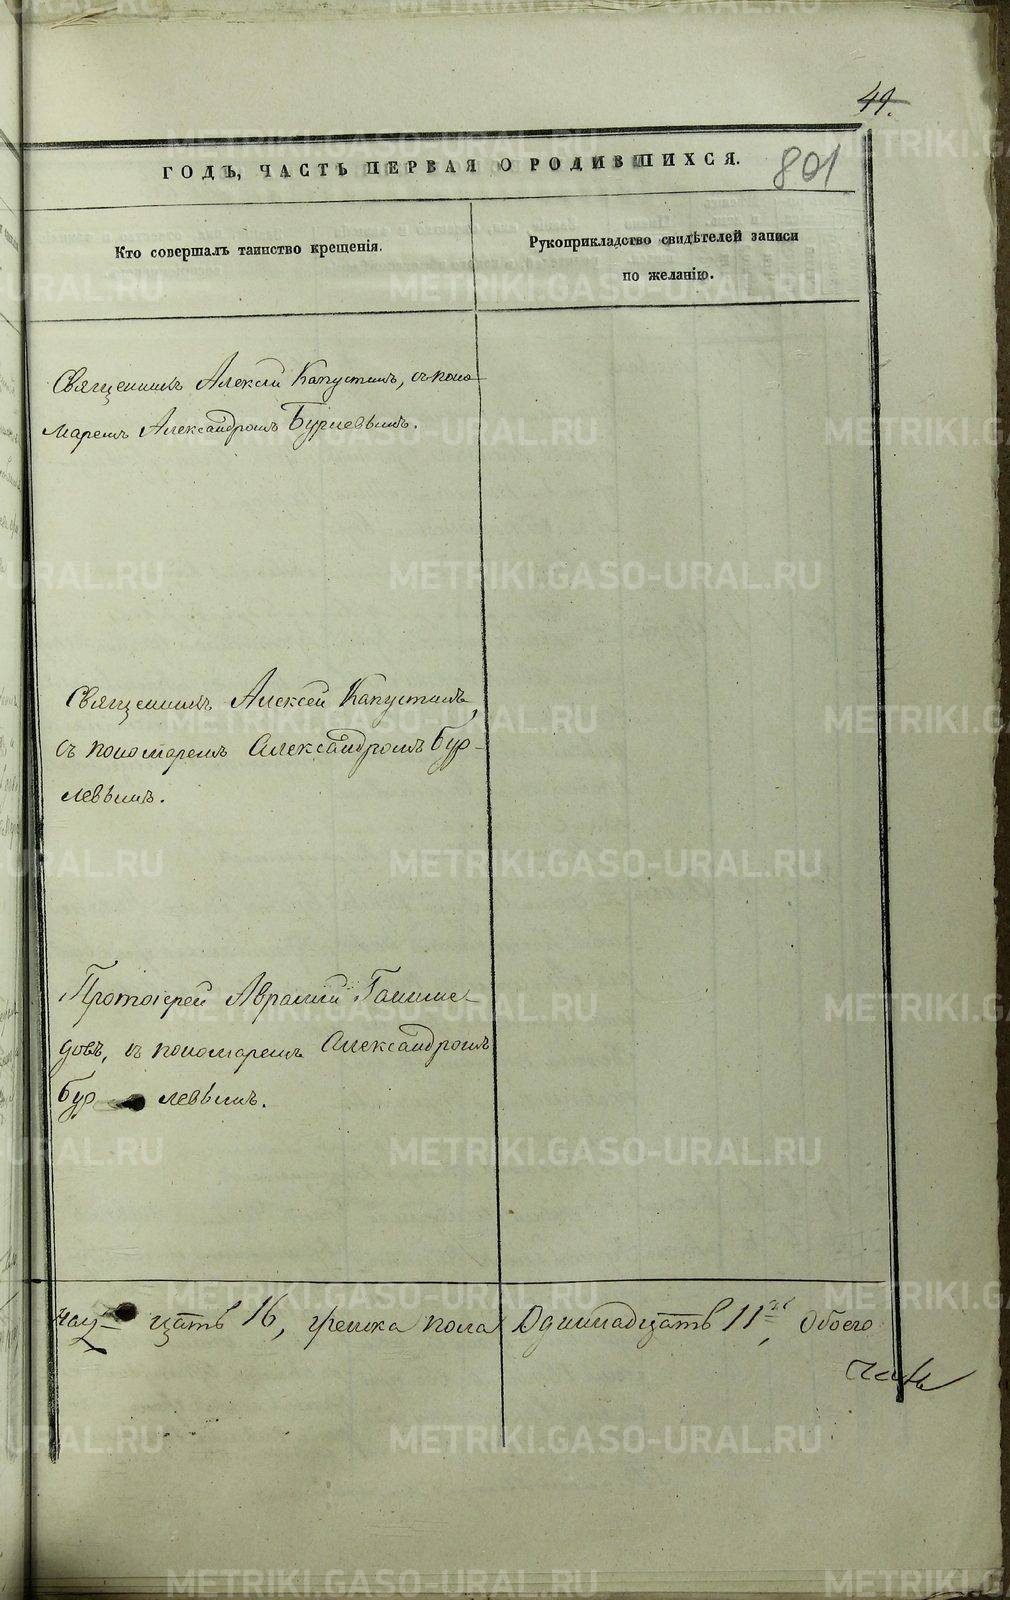 41.
801
ГОДЪ, ЧАСТЬ ПЕРВАЯ О РОДИВШИХСЯ.
Кто совершалъ таинство крещенія.
Рукоприкладство свидѣтелей записи
по желанію.
Священникъ Алексій Капустинъ, съ поно-
маремъ Александромъ Бурлевымъ.
Священникъ Алексей Капустинъ
съ пономаремъ Александромъ Бур-
левымъ.
Протоіерей Аврамій
довъ, съ пономаремъ Александромъ
Бур левымъ.
цать 16, женска пола Одиннадцать 11, Обоего
METRIKI.GASO-URAL.RU